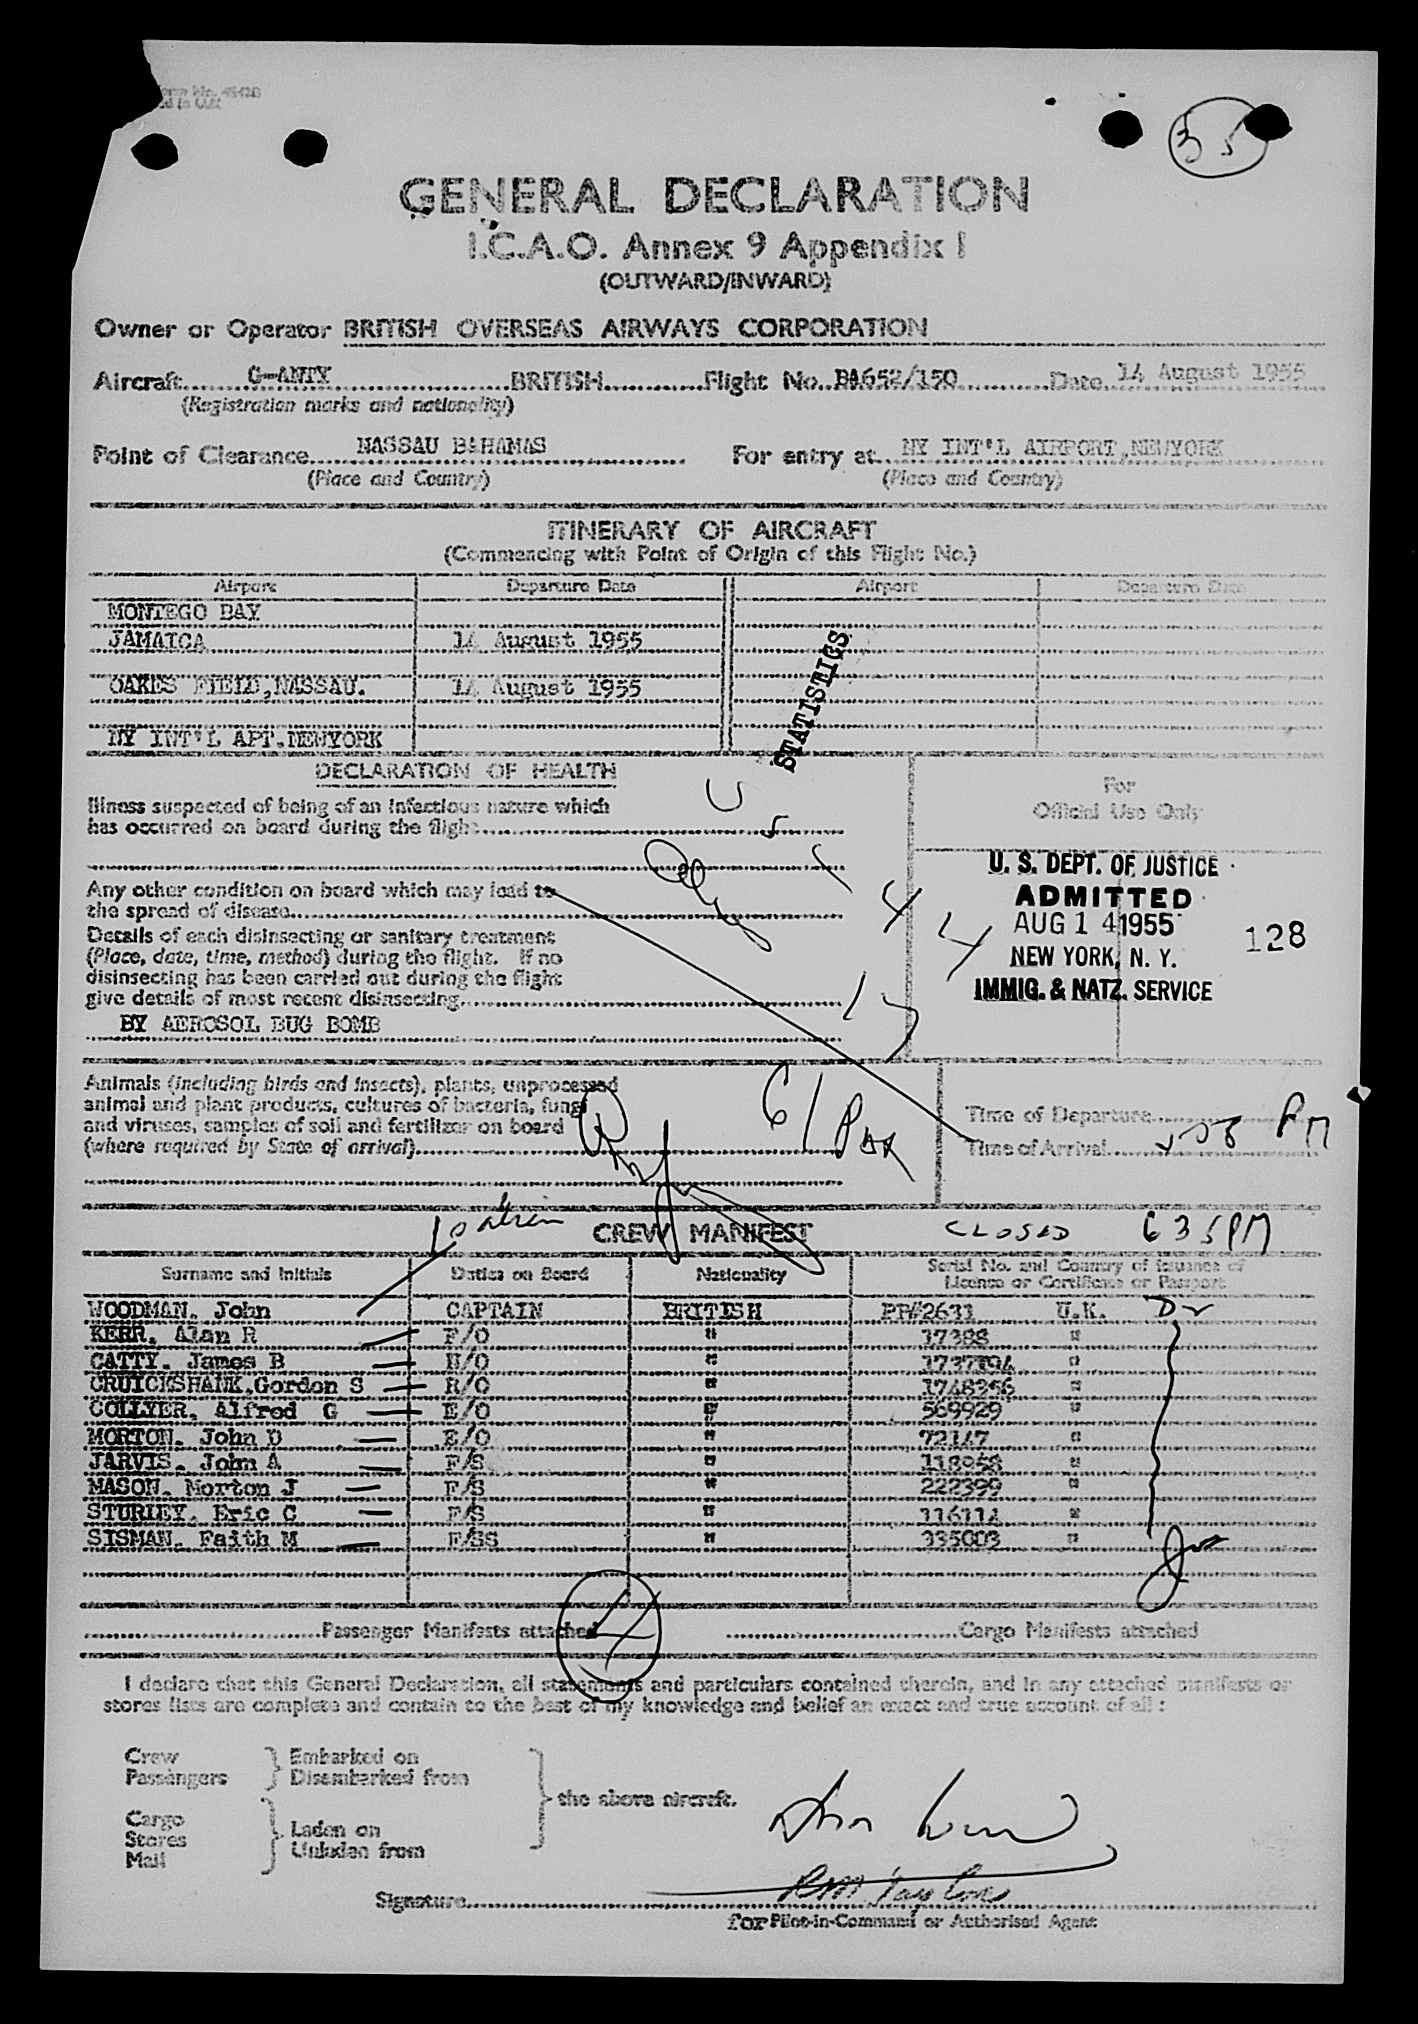 35
GENERAL DECLARATION
I.C.A.O. Annex 9 Appendix I
(OUTWARD/INWARD)
Owner or Operator BRITISH OVERSEAS AIRWAYS CORPORATION
Aircraft G-ANTY BRITISH Flight No. BA652/150 Date 14 August 1955
(Registration marks and nationality)
Point of Clearance NASSAU BAHAMAS For entry at NY INT'L AIRPORT,NEWYORK
(Place and Country) (Place and Country)
ITINERARY OF AIRCRAFT
(Commencing with Point of Origin of this Flight No.)
Airport Departure Date Airport Departure Date
MONTEGO BAY
JAMAICA 14 August 1955
OAKES FIELD,NASSAU. 14 August 1955
NY INT'L APT.NEWYORK
STATISTICS
DECLARATION OF HEALTH
Illness suspected of being of an infectious nature which
has occurred on board during the flight
Any other condition on board which may lead to
the spread of disease
Details of each disinsecting or sanitary treatment
(Place, date, time, method) during the flight. If no
disinsecting has been carried out during the flight
give details of most recent disinsecting
BY AEROSOL BUG BOMB
For
Official Use Only
U. S. DEPT. OF JUSTICE
ADMITTED
AUG 14 1955 128
NEW YORK, N. Y.
IMMIG. & NATZ. SERVICE
Animals (including birds and insects), plants, unprocessed
animal and plant products, cultures of bacteria, fungi
and viruses, samples of soil and fertilizer on board
(where required by State of arrival)
61 Pax
Time of Departure
Time of Arrival PM
CREW MANIFEST CLOSED 635PM
Surname and Initials Duties on Board Nationality Serial No. and Country of Issuance of
License or Certificate or Passport
WOODMAN, John CAPTAIN BRITISH PP#2631 U.K.
KERR, Alan R F/O " 17388 "
CATTY, James B N/O " "
CRUICKSHANK,Gordon S R/O " "
COLLYER, Alfred G E/O " 569929 "
MORTON, John D E/O " 72147 "
JARVIS, John A F/S " "
MASON, Morton J F/S " 222399 "
STURLEY, Eric C F/S " 116114 "
SISMAN, Faith M F/SS " 335003 "
Passenger Manifests attached 4 Cargo Manifests attached
I declare that this General Declaration, all statements and particulars contained therein, and in any attached manifests or
stores lists are complete and contain to the best of my knowledge and belief an exact and true account of all :
Crew Embarked on
Passengers Disembarked from
the above aircraft.
Cargo
Stores Laden on
Mail Unladen from
Signature
for Pilot-in-Command or Authorised Agent